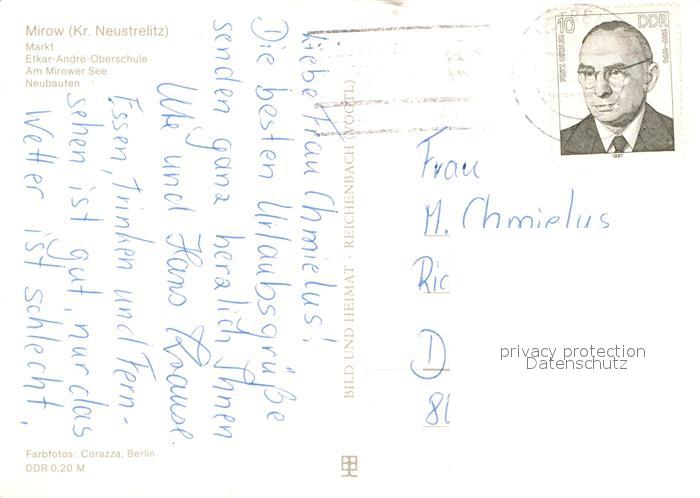 Mirow (Kr. Neustrelitz)
Markt
Etkar-André-Oberschule
Am Mirower See
Neubauten
Liebe Frau Chmielus!
Die besten Urlaubsgrüße
senden ganz herzlich Ihnen
Ute und Hans Krause.
Essen, trinken und Fern-
sehen ist gut, nur das
Wetter ist schlecht.
Farbfotos: Corazza, Berlin
DDR 0,20 M
BILD UND HEIMAT · REICHENBACH (VOGTL)
10 DDR
1987
Frau
M. Chmielus
Ric
D
8
privacy protection
Datenschutz